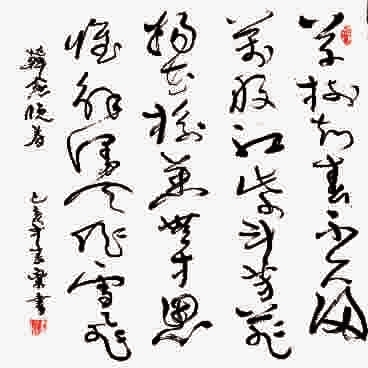 草樹知春不久歸
萬般红紫斗芳菲
楊花榆莢無才思
惟解漫天作雪飛
韓愈晚春 己亥年書